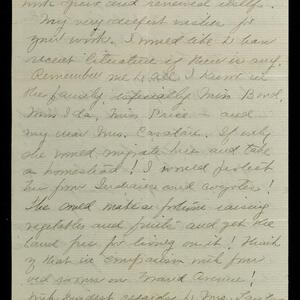 work grow and renewed itself.
My very deepest wishes for
your work. I would like to have
recent literature if there is any.
Remember me to all I knew in
the family, especially Miss Bond,
Miss Ida, Miss Price - and
my dear Mrs. If only
she would migrate here and take
a homestead! I would protect
her from Indians and coyotes!
She could make a fortune raising
vegetables and fruit - and get the
land free for living on it! Think
of that in comparison with four
rooms on Ward Avenue!
With kindest regards to Mrs.